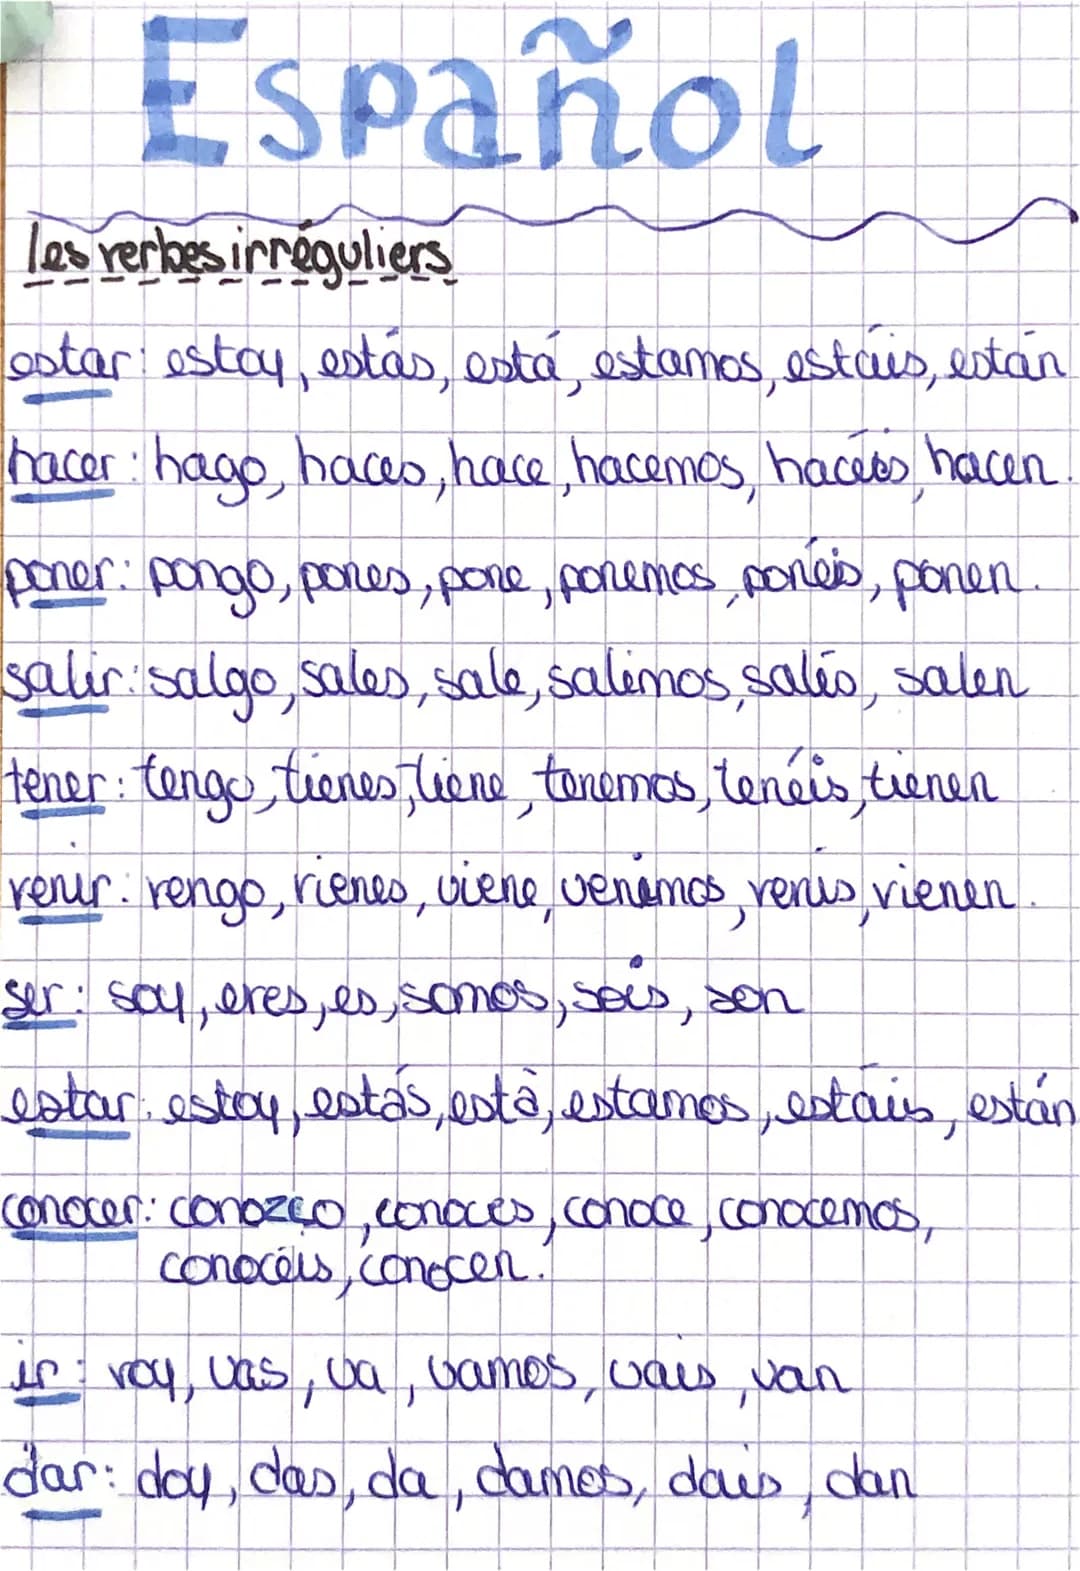 Español
les verbes irréguliers
estar: estoy, estás, está, estamos, estáis, están
hacer: hago, haces, hace, hacemos, hacéis, hacen.
poner: pongo, pones, pone, ponemos, ponéis, ponen.
salir: salgo, sales, sale, salimos, salís, salen
tener: tengo, tienes, tiene, tenemos, tenéis, tienen
venir: vengo, vienes, viene, venimos, venís, vienen.
ser: soy, eres, es, somos, sois, son
estar: estoy, estás, està, estamos, estáis, están
conocer: conozco, conoces, conoce, conocemos,
conocéis, conocen.
ir: voy, vas, va, vamos, vais, van
dar: doy, das, da, damos, dais, dan